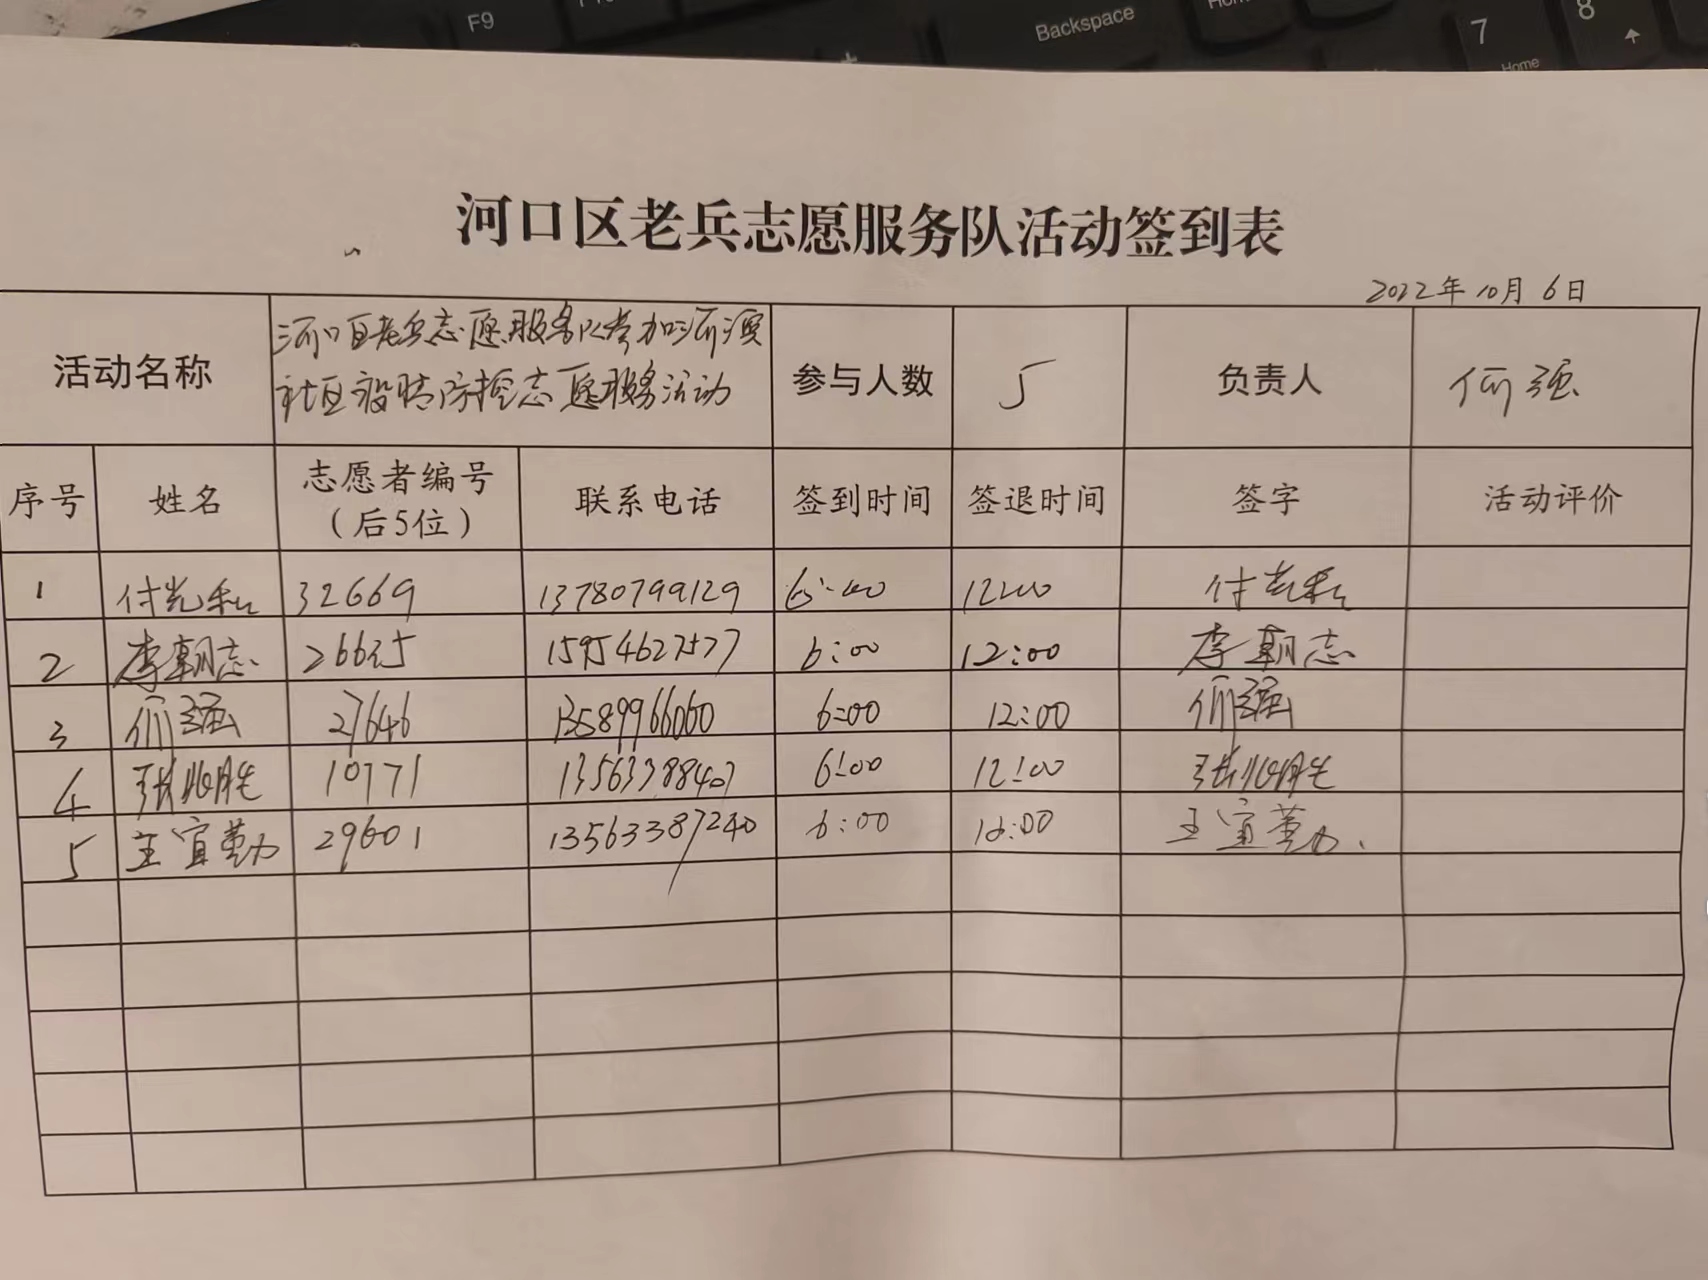 F9
Backspace
7
Home
8
河口区老兵志愿服务队活动签到表
2022年10月6日
活动名称
河口区老兵志愿服务队参加河滨
社区疫情防控志愿服务活动
参与人数 5 负责人 何强
序号 姓名 志愿者编号 联系电话 签到时间 签退时间 签字 活动评价
（后5位）
1 付光和 32669 13780799129 6:00 12:00 付光和
2 李朝志 15954627577 6:00 12:00 李朝志
3 何强 27646 13589966060 6:00 12:00 何强
4 张兆胜 10771 13563388407 6:00 12:00 张兆胜
5 王宜勤 29601 13563387240 6:00 王宜勤